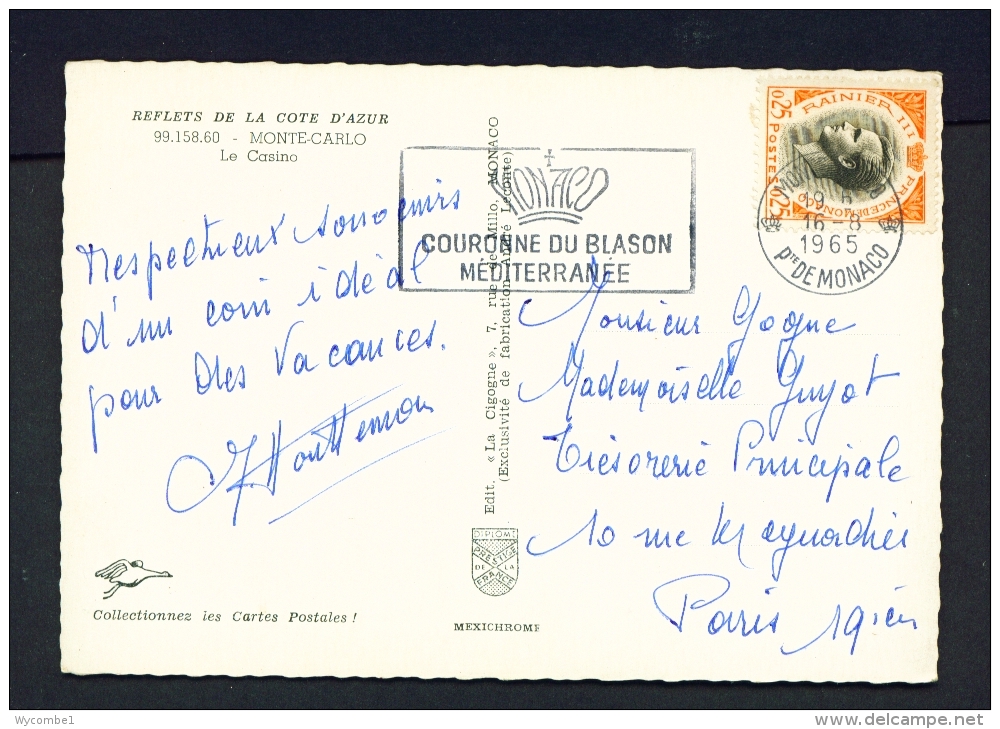 REFLETS DE LA COTE D'AZUR
99.158.60 - MONTE-CARLO
Le Casino
Respectueux souvenirs
d'un coin idéal
pour des vacances.
Collectionnez les Cartes Postales !
Edit. « La Cigogne », 7, rue de Millo, MONACO
(Exclusivité de fabrication André Leconte)
DIPLOME
PRESTIGE
DE LA
FRANCE
MEXICHROME
MONACO
COURONNE DU BLASON
MÉDITERRANÉE
RAINIER III
PRINCE DE MONACO
0,25 POSTES 0,25
16-8
1965
PTE DE MONACO
Monsieur Gogne
Mademoiselle Guyot
Trésorerie Principale
10 rue
Paris 19ième
Wycombe1
www.delcampe.net